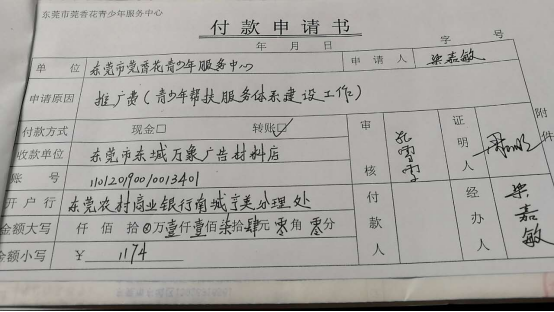 东莞市莞香花青少年服务中心
付款申请书
年 月 日 字 号
单位 东莞市莞香花青少年服务中心 申请人 梁嘉敏
申请原因 推广费(青少年帮扶服务体系建设工作)
付款方式 现金□ 转账☑ 审核 证明人 附件
收款单位 东莞市东城万象广告材料店
账号 110120190010013401
开户行 东莞农村商业银行南城亨美分理处 付款人 经办人 梁嘉敏
金额大写 仟 佰 拾⊗万壹仟壹佰柒拾肆元零角零分
金额小写 ¥ 1174